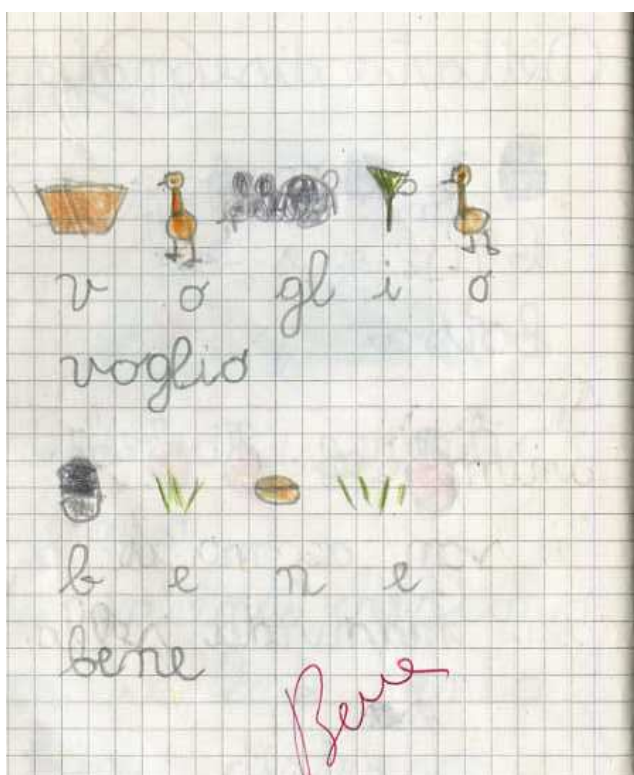 v o gl i o
voglio
b e n e
bene
Bene